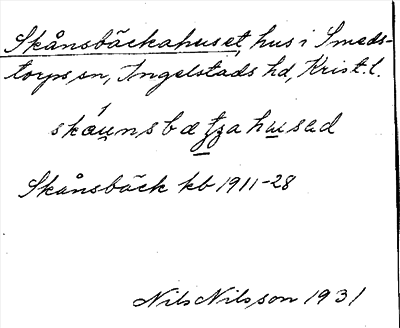 Skånsbäckahuset, hus i Smeds-
torps sn, Ingelstads hd, Krist. l.
Skånsbäck kb 1911-28
Nils Nilsson 1931